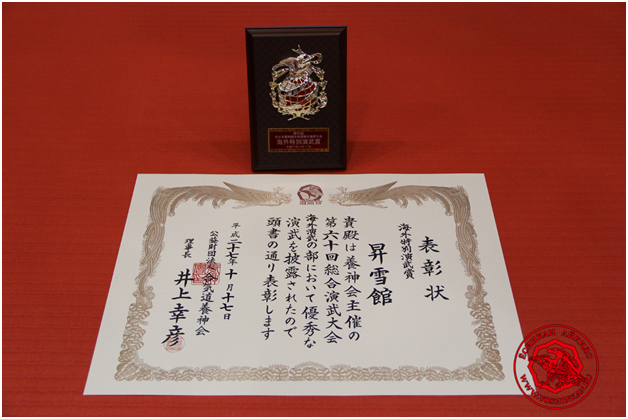 海外特別演武賞
表彰状
海外特別演武賞
昇雪館
貴殿は養神会主催の
第六十回総合演武大会
海外演武の部において優秀な
演武を披露されたので
頭書の通り表彰します
平成二十七年十月十七日
公益財団法人合気道養神会
理事長
井上幸彦